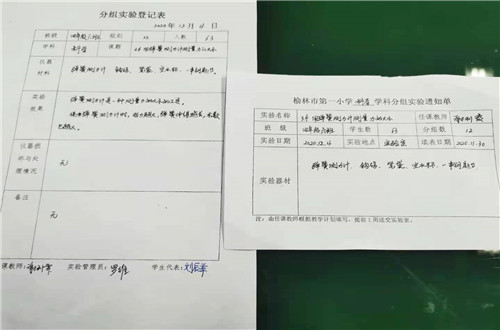 分组实验登记表
2020年12月4日
班级 四年级六班 组别 12 人数 63
学科 科学 课题 3.4 用弹簧测力计测量力的大小
仪器材料 弹簧测力计、钩码、笔袋、
实验效果 弹簧测力计是一种测量力的大小的工具。
使用弹簧测力计时,拉力越大,弹簧伸得越长,示数
也越大。
仪器损坏与处理情况 无
备注 无
课教师: 实验管理员: 学生代表:
榆林市第一小学 科学 学科分组实验通知单
实验名称 3.4 用弹簧测力计测量力的大小 任课教师
班级 四年级六班 学生数 63 分组数 12
实验日期 2020.12.4 实验地点 实验室 填表日期 2020.11.30
实验器材 弹簧测力计、钩码、笔袋、
注:由任课教师根据教学计划填写,提前1周送交实验室。